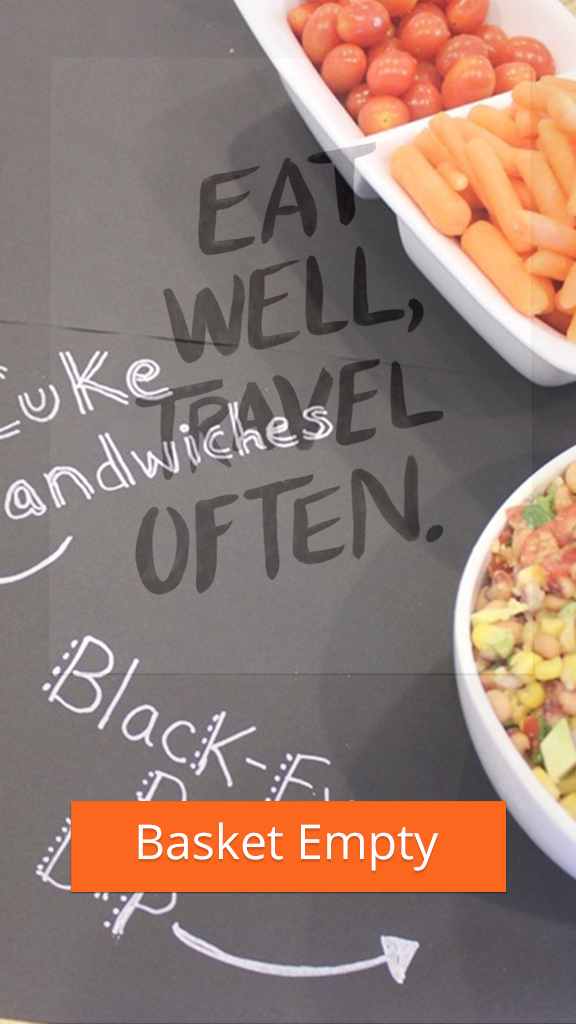 EAT
WELL,
TRAVEL
OFTEN.
CuKe
andwiches
Black-Ey
Dip
Basket Empty